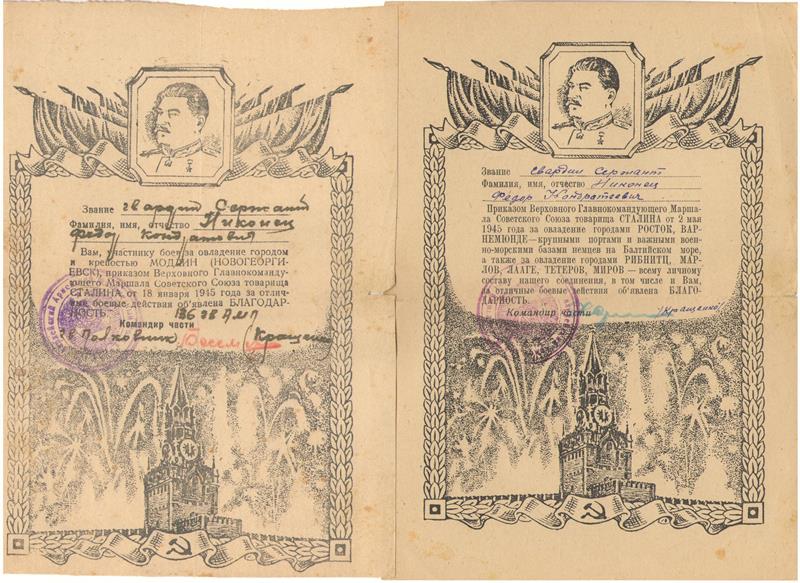 Звание гвардии Сержант
Фамилия, имя, отчество Никонец
Федор Кондратович
Вам, участнику боев за овладение городом
и крепостью МОДЛИН (НОВОГЕОРГИ-
ЕВСК), приказом Верховного Главнокоманду-
ющего Маршала Советского Союза товарища
СТАЛИНА от 18 января 1945 года за отлич-
ные боевые действия об'явлена БЛАГОДАР-
НОСТЬ.
136 гв АМП
Командир части
гв Полковник (Кращенко
Звание гвардии Сержант
Фамилия, имя, отчество Никонец
Федор Кондратеевич
Приказом Верховного Главнокомандующего Марша-
ла Советского Союза товарища СТАЛИНА от 2 мая
1945 года за овладение городами РОСТОК, ВАР-
НЕМЮНДЕ—крупными портами и важными воен-
но-морскими базами немцев на Балтийском море,
а также за овладение городами РИБНИТЦ, МАР-
ЛОВ, ЛААГЕ, ТЕТЕРОВ, МИРОВ — всему личному
составу нашего соединения, в том числе и Вам,
за отличные боевые действия об'явлена БЛАГО-
ДАРНОСТЬ.
Командир части /Кращенко/